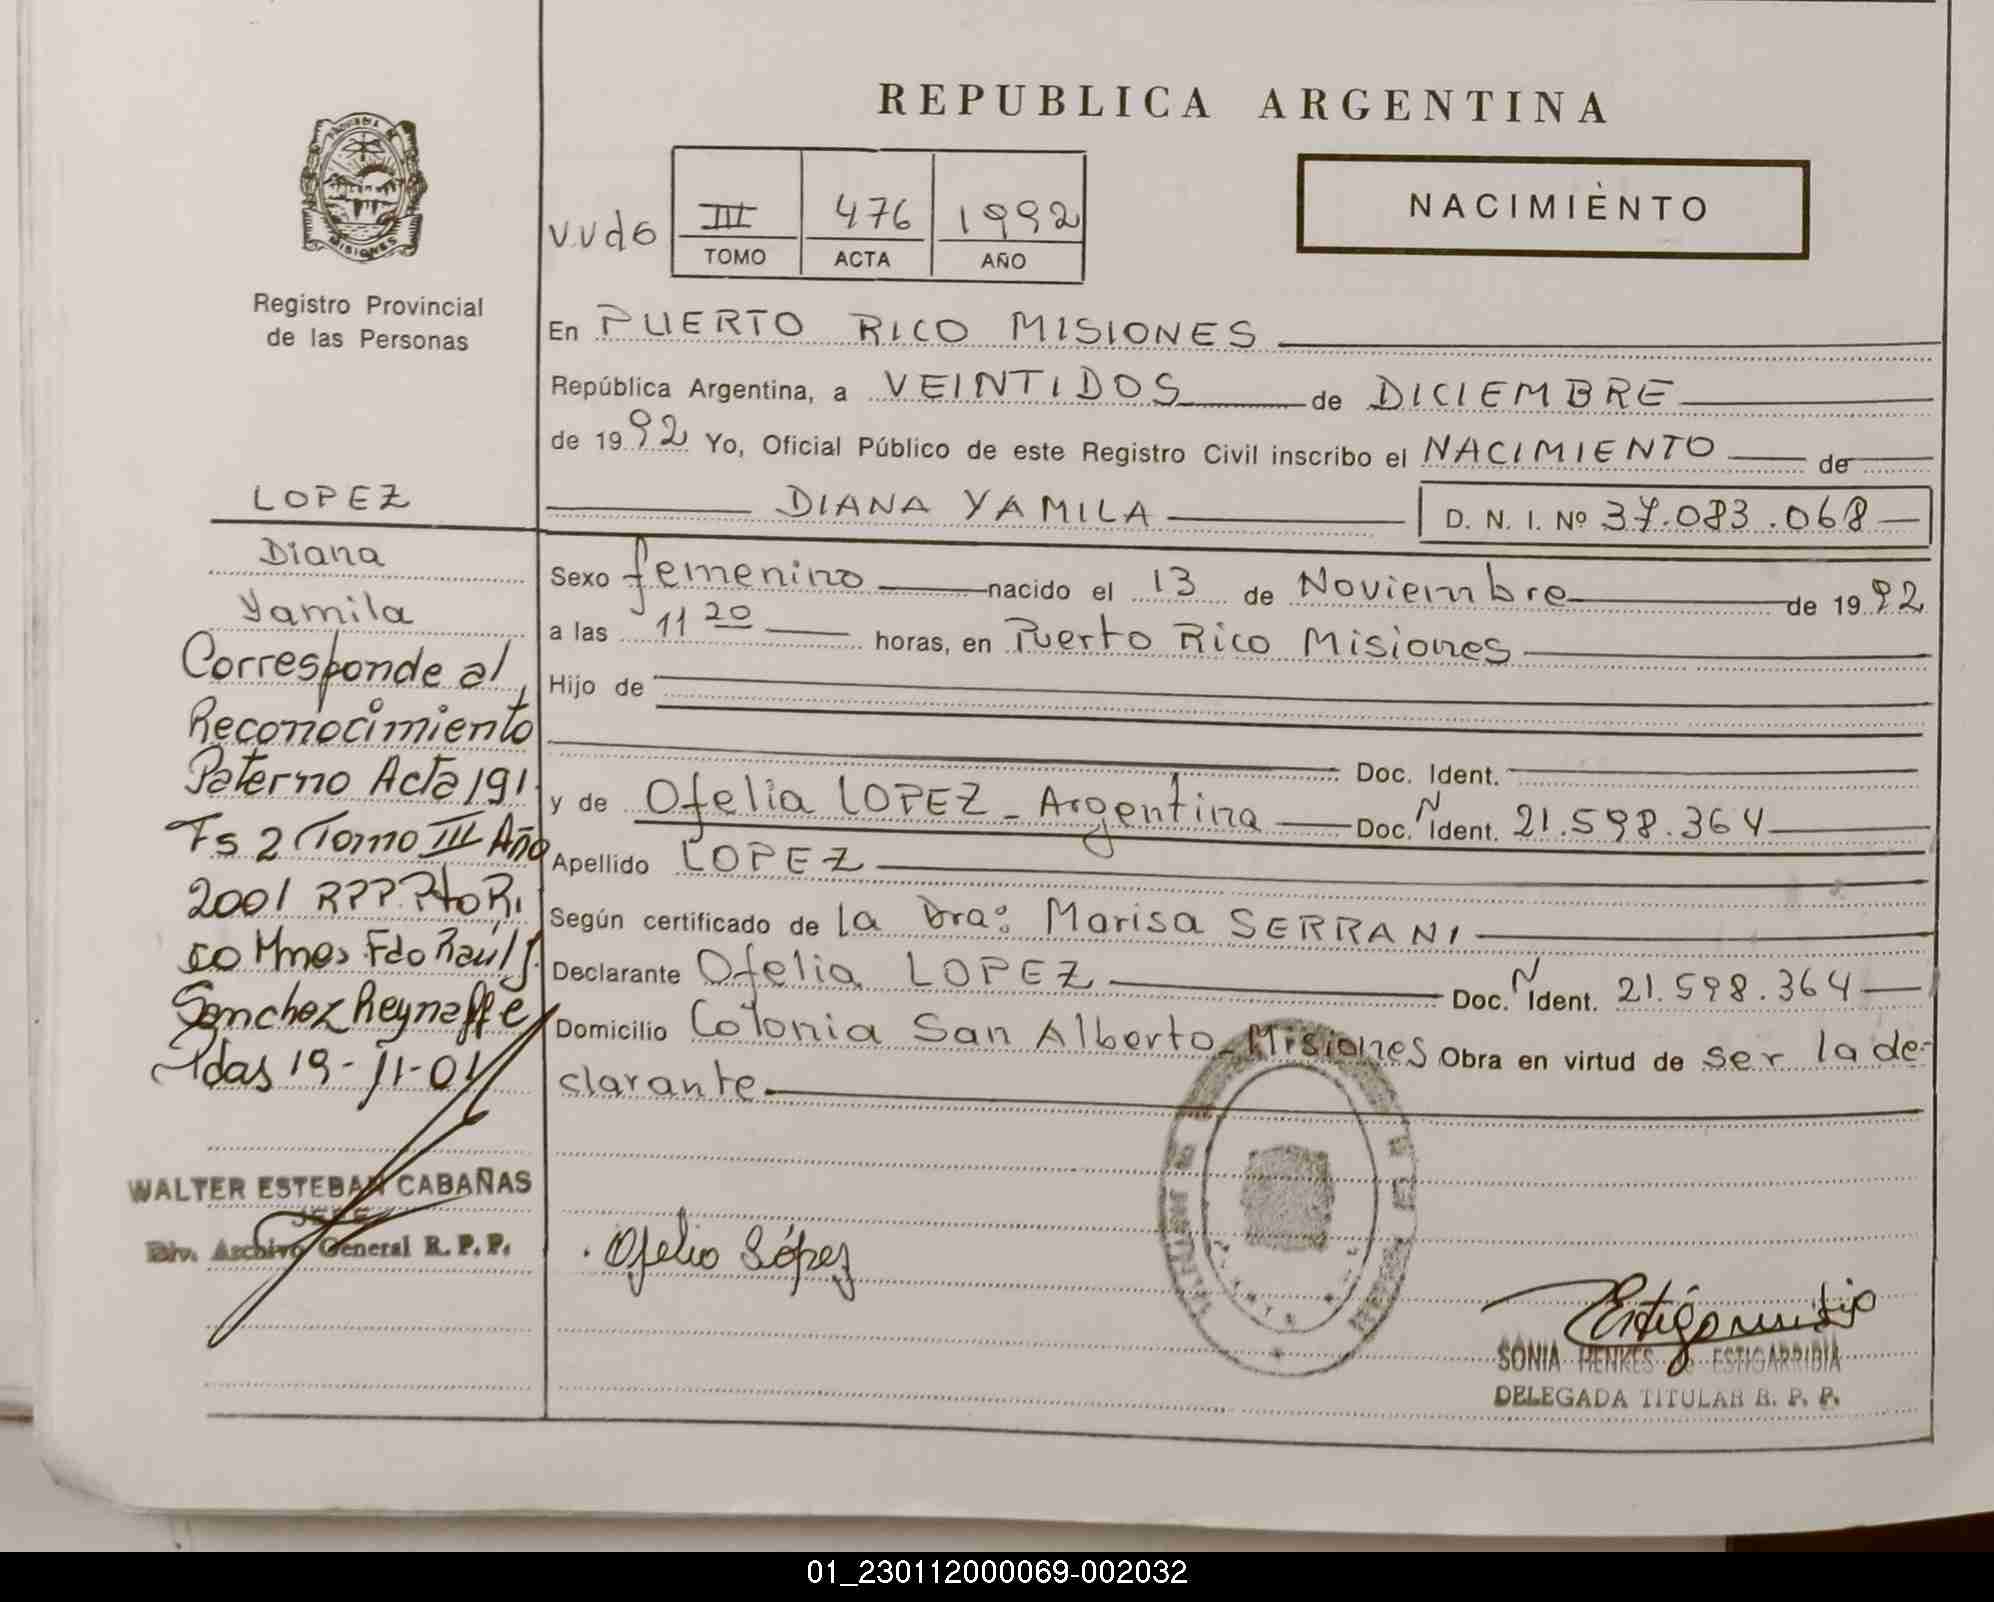 REPUBLICA ARGENTINA
NACIMIENTO
III 476 1992
TOMO ACTA AÑO
Registro Provincial
de las Personas
En PUERTO RICO MISIONES
República Argentina, a VEINTIDOS de DICIEMBRE
de 1992 Yo, Oficial Público de este Registro Civil inscribo el NACIMIENTO de
DIANA YAMILA D. N. I. Nº 37.083.068
Sexo femenino nacido el 13 de Noviembre de 1992
a las 11 20 horas, en Puerto Rico Misiones
Hijo de
Doc. Ident.
y de Ofelia LOPEZ - Argentina Doc. N Ident. 21.598.364
Apellido LOPEZ
Según certificado de la Dra: Marisa SERRANI
Declarante Ofelia LOPEZ Doc. N Ident. 21.598.364
Domicilio Colonia San Alberto - Misiones Obra en virtud de ser la de-
clarante
LOPEZ
Diana
Yamila
Corresponde al
Reconocimiento
Paterno Acta 191
Fs 2 Tomo III Año
2001 RPP Pto Ri
co Mnes Fdo Raúl
Sanchez
Pdas 19-11-01
WALTER ESTEBAN CABAÑAS
JEFE
Div. Archivo General R. P. P.
Ofelia López
SONIA HENKES DE ESTIGARRIBIA
DELEGADA TITULAR R. P. P.
01_230112000069-002032